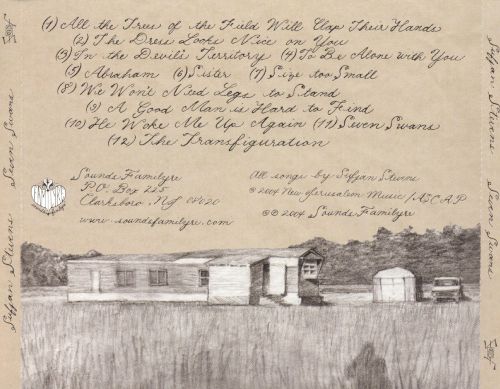 (1) All the Trees of the Field Will Clap Their Hands
(2) The Dress Looks Nice on You
(3) In the Devil's Territory (4) To Be Alone with You
(5) Abraham (6) Sister (7) Size too Small
(8) We Won't Need Legs to Stand
(9) A Good Man is Hard to Find
(10) He Woke Me Up Again (11) Seven Swans
(12) The Transfiguration
Sounds Familyre
P.O. Box 225
Clarksboro, NJ 08020
www.soundsfamilyre.com
All songs by Sufjan Stevens
© 2004 New Jerusalem Music / ASCAP
℗© 2004 Sounds Familyre
Sufjan Stevens Seven Swans
Sufjan Stevens Seven Swans